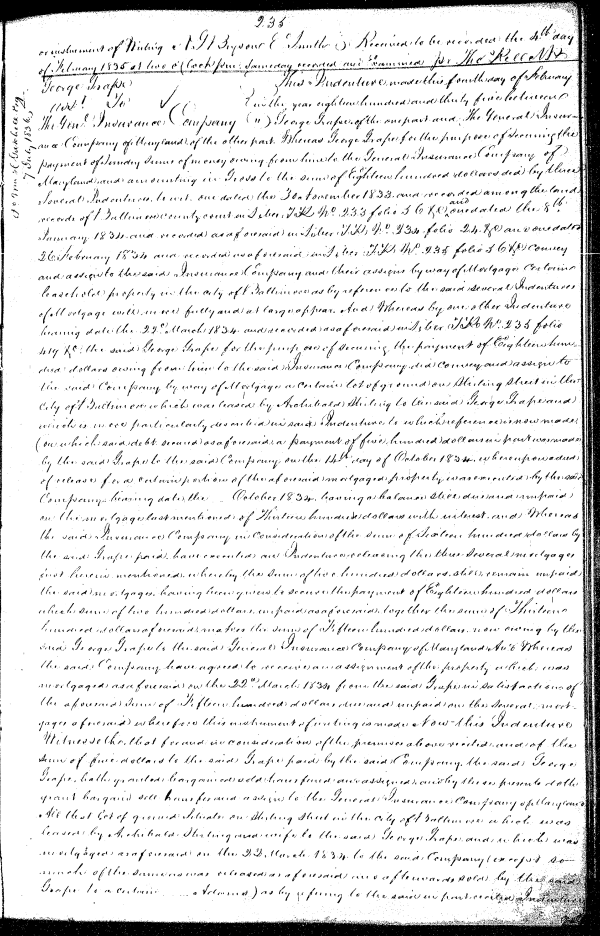 235
or instrument of Writing Received to be recorded the 4th day
of February 1835 at two o'Clock P.m. Same day recorded and Examined pr Tho' Kell Clk
George Grape This Indenture made this fourth day of February
To in the year eighteen hundred and thirty five between
The Genl Insurance Company George Grape of the one part and The General Insur-
ance Company of Maryland of the other part Whereas George Grape for the purpose of securing the
payment of Sundry sums of money owing from him to the General Insurance Company of
Maryland and amounting in Gross to the sum of Eighteen hundred dollars did by three
several Indentures to wit. one dated the 30 November 1833 and recorded among the land
records of Baltimore county court in Liber T.K. No. 233 folio 56 &c, and one dated the 8th
January 1834 and recorded as aforesaid in Liber T.K. No. 234 folio 24 &c and one dated
26 February 1834 and recorded as aforesaid in Liber T.K. No. 235 folio 56 &c convey
and assign to the said Insurance Company and their assigns by way of Mortgage certain
leasehold property in the city of Baltimore as by reference to the said several Indentures
of Mortgage will more fully and at large appear. And Whereas by one other Indenture
bearing date the 22nd March 1834 and recorded as aforesaid in Liber T.K. No. 235 folio
419 &c, the said George Grape for the purpose of securing the payment of Eighteen hun-
dred dollars owing from him to the said Insurance Company did convey and assign to
the said Company by way of Mortgage a certain lot of ground on Stirling street in the
City of Baltimore which was leased by Archibald Stirling to the said George Grape and
which is more particularly described in said Indenture to which reference is now made
(on which said debt secured as aforesaid a payment of five hundred dollars in part was made
by the said Grape to the said Company on the 14th day of October 1834, whereupon a deed
of release for a certain portion of the aforesaid mortgaged property was executed by the said
Company bearing date the October 1834 leaving a balance still due and unpaid
on the mortgage last mentioned of Thirteen hundred dollars with interest. and Whereas
the said Insurance Company in Consideration of the sum of Sixteen hundred dollars by
the said Grape paid, have executed an Indenture releasing the three several mortgages
first herein mentioned, whereby the sum of two hundred dollars still remain unpaid
the said mortgages having been given to secure the payment of Eighteen hundred dollars
which sum of two hundred dollars, unpaid as aforesaid, together the sum of Thirteen
hundred dollars aforesaid makes the sum of Fifteen hundred dollars now owing by the
said George Grape to the said General Insurance Company of Maryland And Whereas
the said Company have agreed to receive an assignment of the property which was
mortgaged as aforesaid on the 22nd March 1834 from the said Grape in satisfaction of
the aforesaid sum of Fifteen hundred dollars due and unpaid on the several mort-
gages aforesaid wherefore this instrument of writing is made Now this Indenture
Witnesseth, that for and in consideration of the premises above recited, and of the
sum of five dollars to the said Grape paid by the said Company, the said George
Grape, hath granted bargained sold transferred and assigned, and by these presents doth
grant bargain sell transfer and assign to the General Insurance Company of Maryland
All that Lot of ground Situate on Stirling street in the City of Baltimore which was
leased by Archibald Stirling and wife to the said George Grape and which was
mortgaged as aforesaid on the 22 March 1834 to the said Company (except so
much of the same as was released as aforesaid and afterwards sold by the said
Grape to a certain Adams) as by refering to the said in part recited Indenture